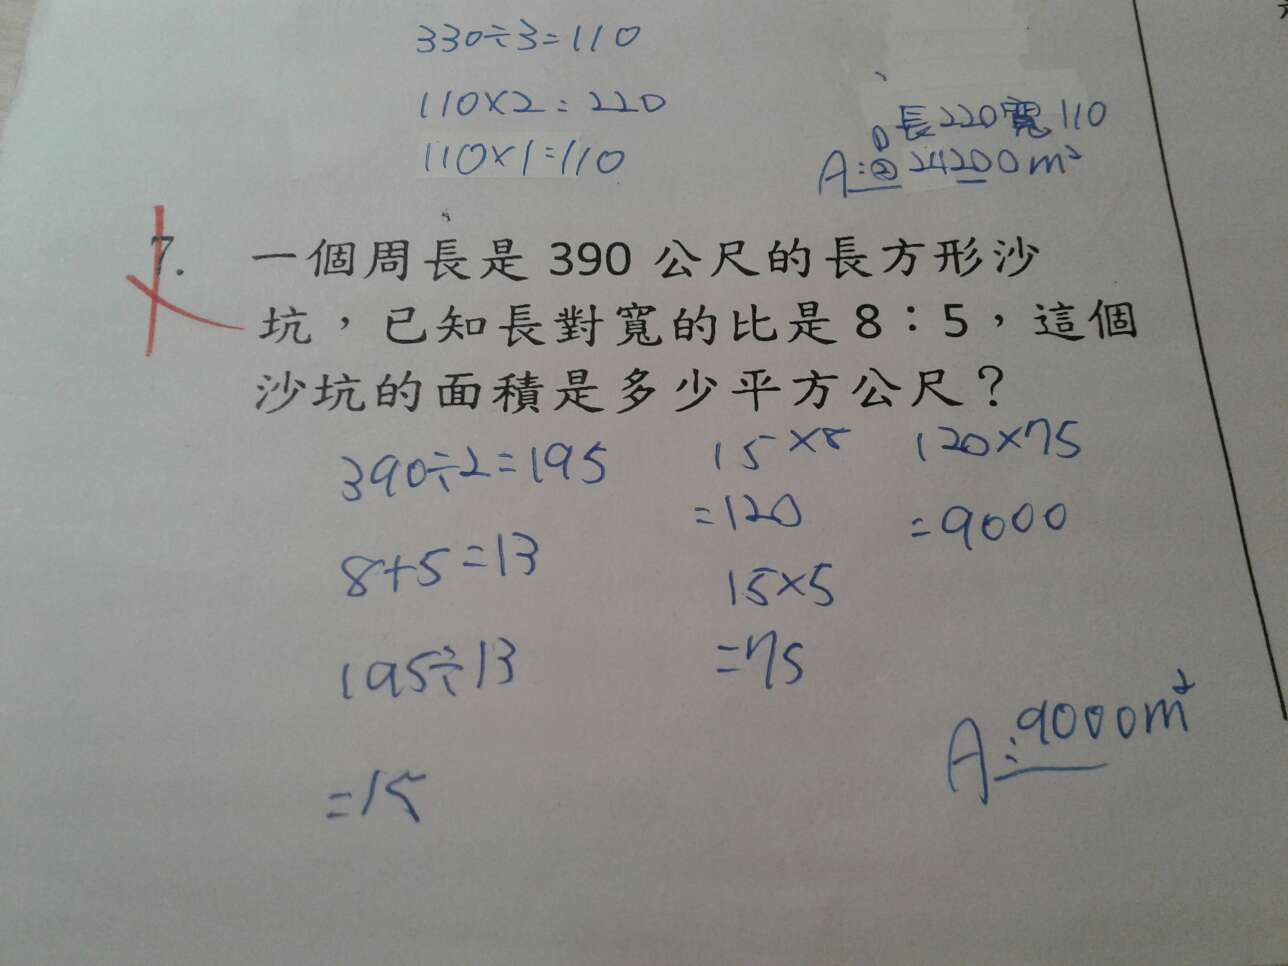 330÷3=110
110×2=220
110×1=110
①長220寬110
A:②24200m²
7. 一個周長是 390 公尺的長方形沙
坑，已知長對寬的比是 8：5，這個
沙坑的面積是多少平方公尺？
390÷2=195
8+5=13
195÷13
=15
15×8
=120
15×5
=75
120×75
=9000
A:9000m²